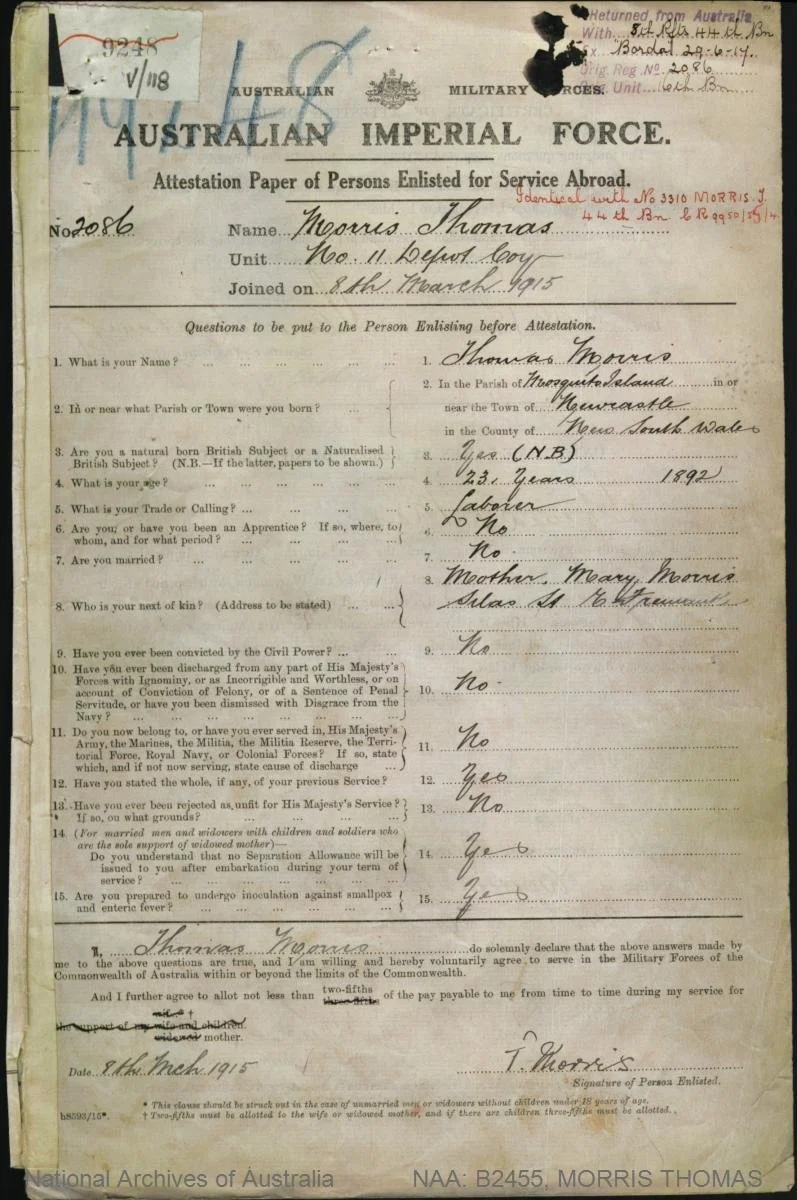 9248
V/118
Returned from Australia
With 8th Rfts 44th Bn
Ex "Borda" 29-6-17.
Orig. Reg. No. 2086
Unit 16th Bn
AUSTRALIAN MILITARY FORCES.
AUSTRALIAN IMPERIAL FORCE.
Attestation Paper of Persons Enlisted for Service Abroad.
Identical with No 3310 MORRIS. T.
44th Bn
No. 2086 Name Morris Thomas
Unit No. 11 Depot Coy
Joined on 8th March 1915
Questions to be put to the Person Enlisting before Attestation.
1. What is your Name? ... ... ... ... 1. Thomas Morris
2. In or near what Parish or Town were you born? ... 2. In the Parish of Mosquito Island in or
near the Town of Newcastle
in the County of New South Wales
3. Are you a natural born British Subject or a Naturalised
British Subject? (N.B.—If the latter, papers to be shown.) 3. Yes (N.B)
4. What is your age? ... ... ... ... 4. 23 Years 1892
5. What is your Trade or Calling? ... ... ... ... 5. Laborer
6. Are you, or have you been an Apprentice? If so, where, to
whom, and for what period? ... ... ... ... 6. No
7. Are you married? ... ... ... ... 7. No.
8. Who is your next of kin? (Address to be stated) ... ... 8. Mother. Mary Morris
Silas St E. Fremantle
9. Have you ever been convicted by the Civil Power? ... ... 9. No
10. Have you ever been discharged from any part of His Majesty's
Forces with Ignominy, or as Incorrigible and Worthless, or on
account of Conviction of Felony, or of a Sentence of Penal
Servitude, or have you been dismissed with Disgrace from the
Navy? ... ... ... ... ... ... 10. No.
11. Do you now belong to, or have you ever served in, His Majesty's
Army, the Marines, the Militia, the Militia Reserve, the Terri-
torial Force, Royal Navy, or Colonial Forces? If so, state
which, and if not now serving, state cause of discharge ... 11. No
12. Have you stated the whole, if any, of your previous Service? 12. Yes
13. Have you ever been rejected as unfit for His Majesty's Service?
If so, on what grounds? ... ... ... ... 13. No
14. (For married men and widowers with children and soldiers who
are the sole support of widowed mother)—
Do you understand that no Separation Allowance will be
issued to you after embarkation during your term of
service? ... ... ... ... ... ... 14. Yes
15. Are you prepared to undergo inoculation against smallpox
and enteric fever? ... ... ... ... ... 15. Yes
I, Thomas Morris do solemnly declare that the above answers made by
me to the above questions are true, and I am willing and hereby voluntarily agree to serve in the Military Forces of the
Commonwealth of Australia within or beyond the limits of the Commonwealth.
And I further agree to allot not less than two-fifths
three-fifths of the pay payable to me from time to time during my service for
wife †
the support of my wife and children.
widowed mother.
Date 8th Mch 1915 T. Morris
Signature of Person Enlisted.
* This clause should be struck out in the case of unmarried men or widowers without children under 18 years of age.
h8593/15*. † Two-fifths must be allotted to the wife or widowed mother, and if there are children three-fifths must be allotted.
National Archives of Australia NAA: B2455, MORRIS THOMAS